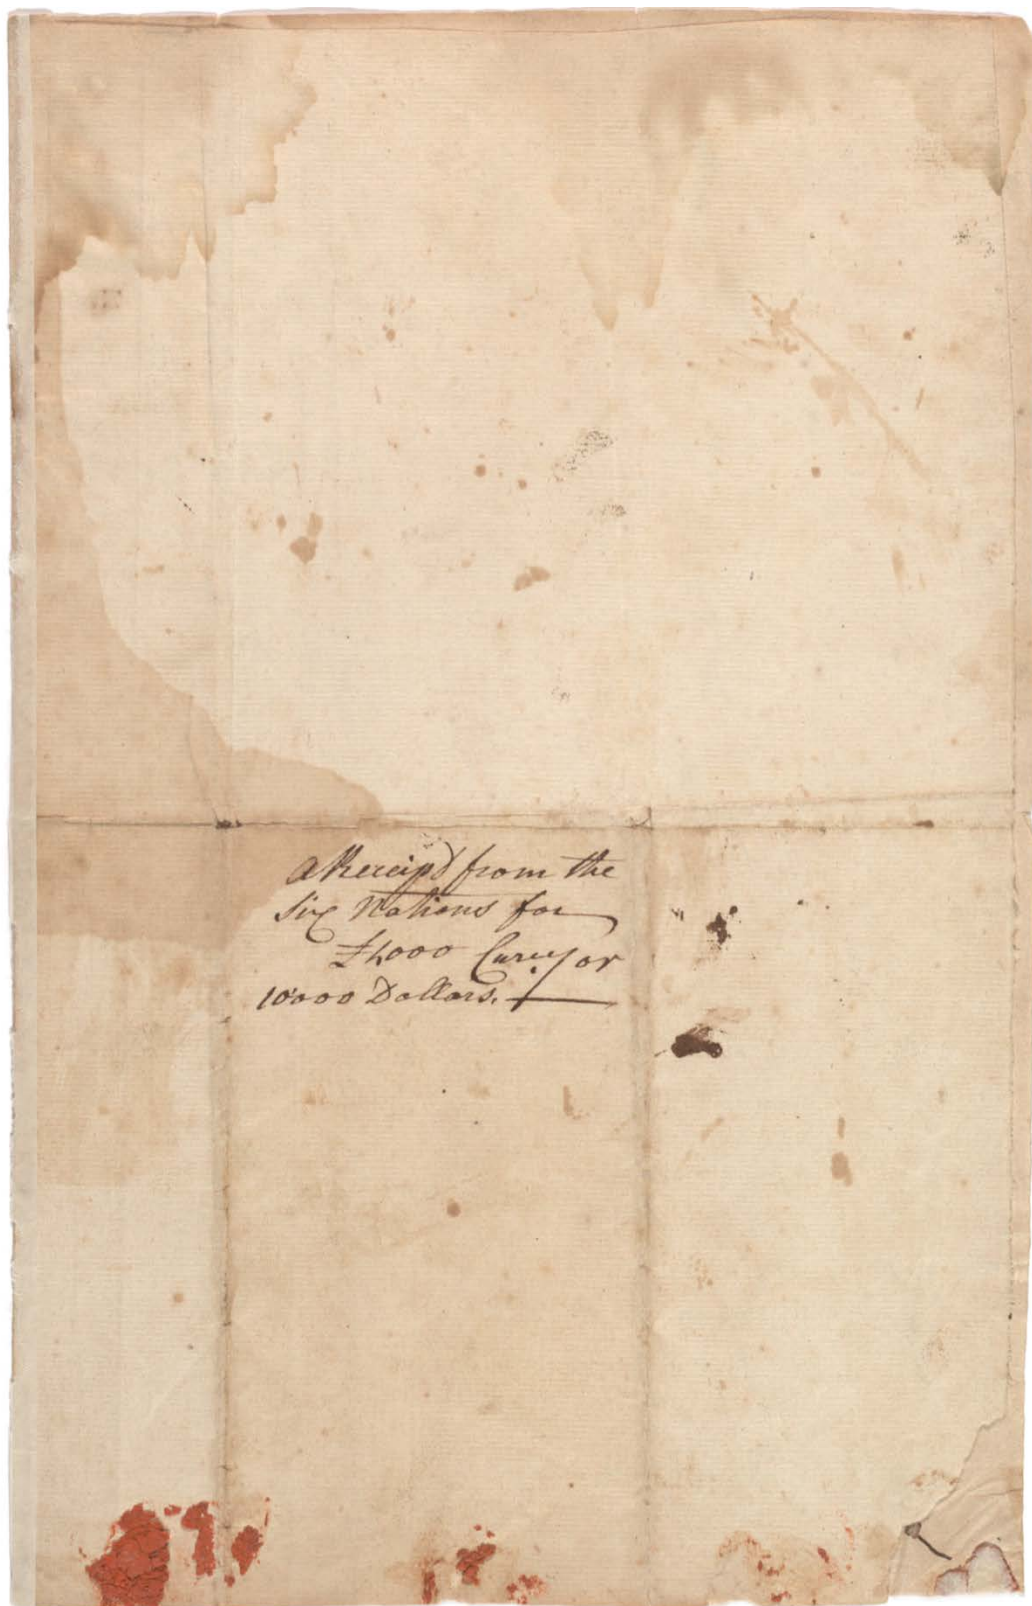 A Receipt from the
Six Nations for
£4000 Curcy or
10000 Dollars.